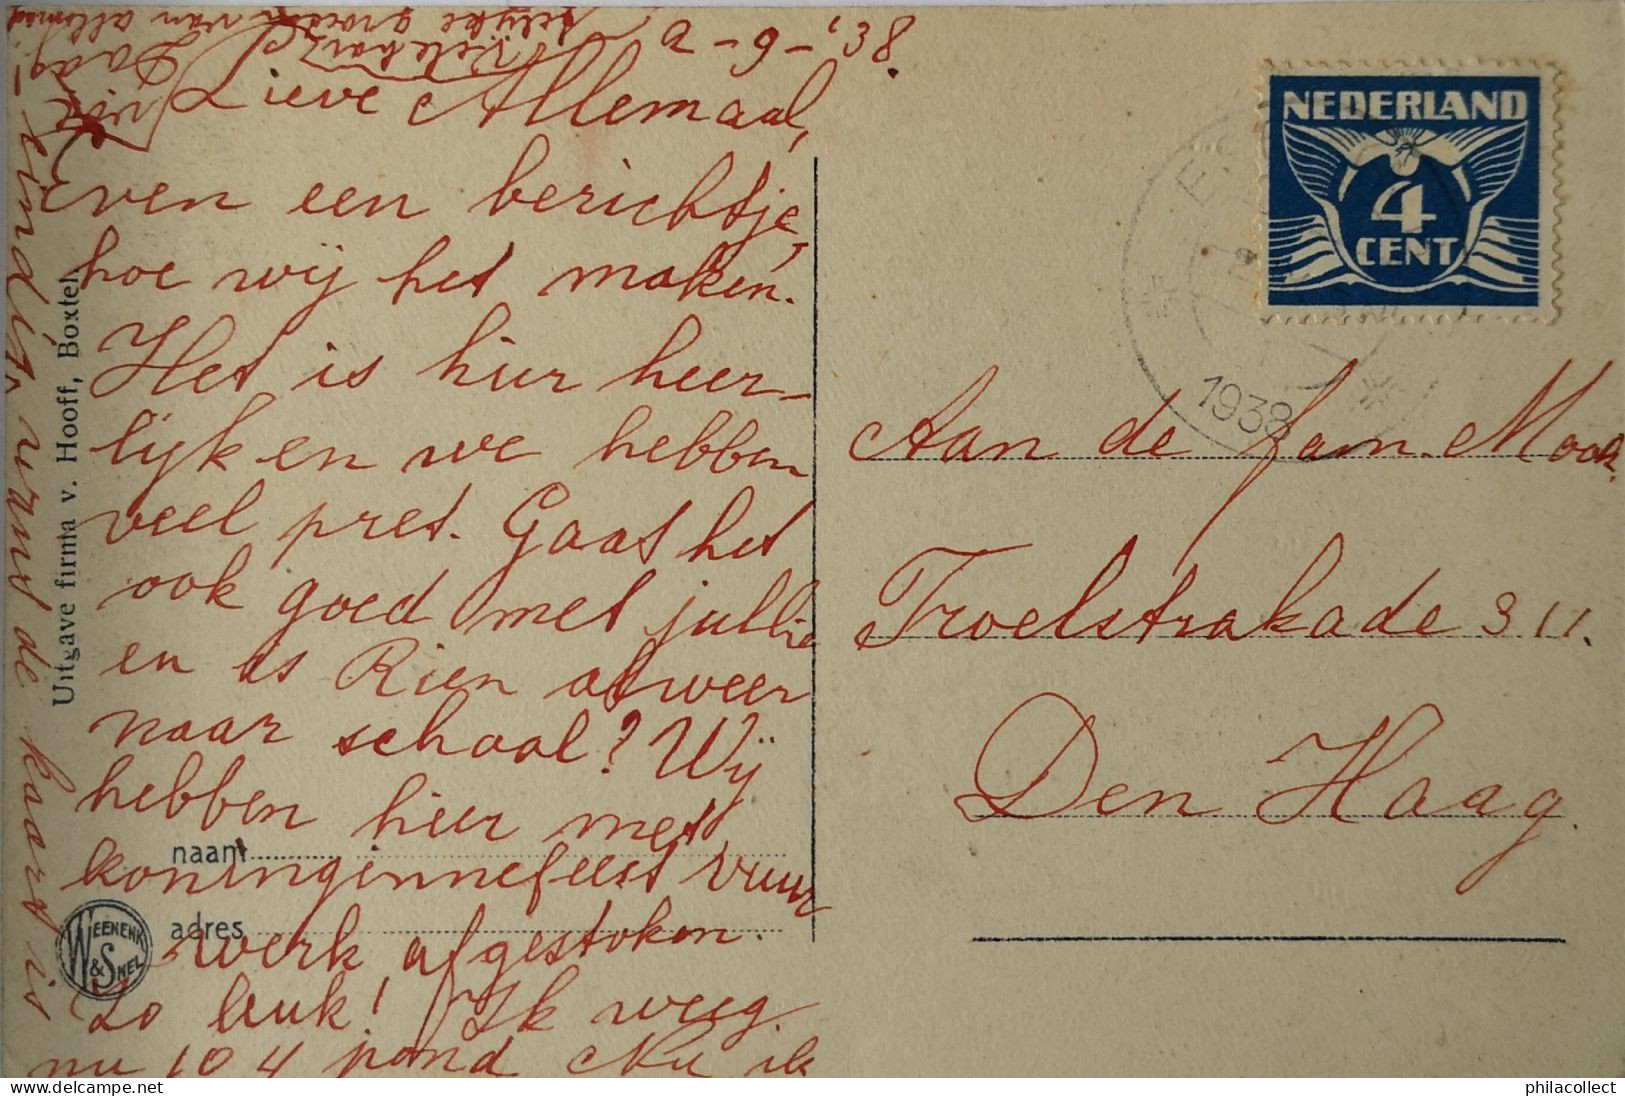 2-9-'38.
Lieve Allemaal,
Even een berichtje,
hoe wij het maken.
Het is hier heer-
lijk en we hebben
veel pret. Gaat het
ook goed met jullie
en is Rien alweer
naar school? Wij
hebben hier met
koninginnefeest vuur
werk afgestoken.
Zo leuk! Ik weeg
nu 104 pond Nu ik
eindig, want de kaart is
vol Daag!
Vele hartelijke groeten van allemaal
Uitgave firma v. Hooff, Boxtel.
naam
adres
WEENENK & SNEL
NEDERLAND
4
CENT
1938
Aan de fam. Mook
Troelstrakade 311.
Den Haag.
philacollect